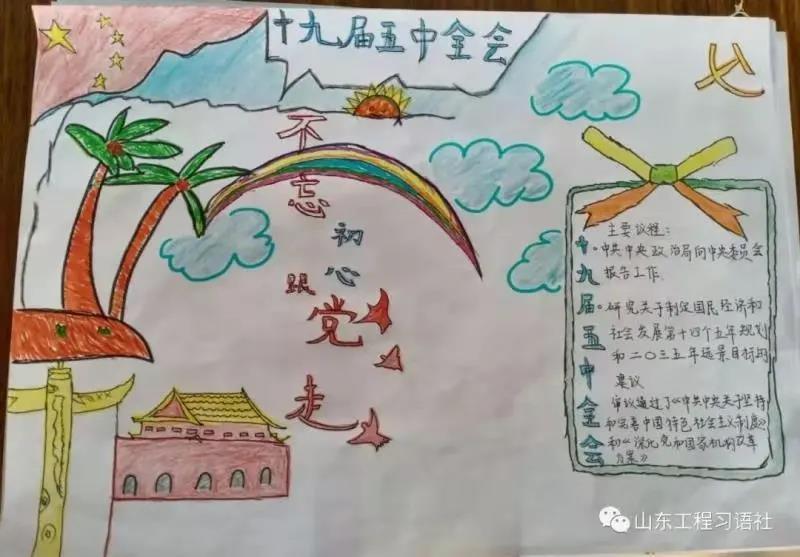 十九届五中全会
不忘
初心
跟
党
走
十九届五中全会
主要议程：
中共中央政治局向中央委员会
报告工作.
研究关于制定国民经济和
社会发展第十四个五年规划
和二〇三五年远景目标的
建议
审议通过了《中共中央关于坚持
和完善中国特色社会主义制度》
和《深化党和国家机构改革
方案》
山东工程习语社